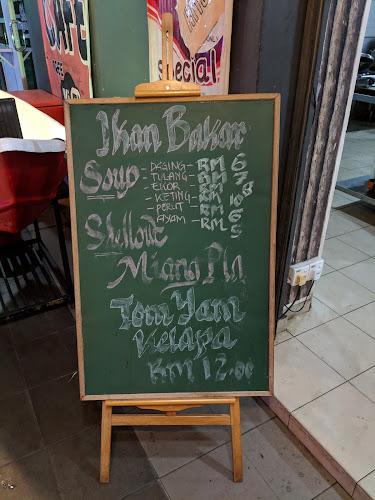 CAFE
special
Ikan Bakar
Soup - DAGING - RM 6
- TULANG - RM 7
- EKOR - RM 8
- KETING - RM 10
- PERUT - RM 6
- AYAM - RM 5
Shellout
Miang Pla
Tom Yam
Kelapa
RM 12.00